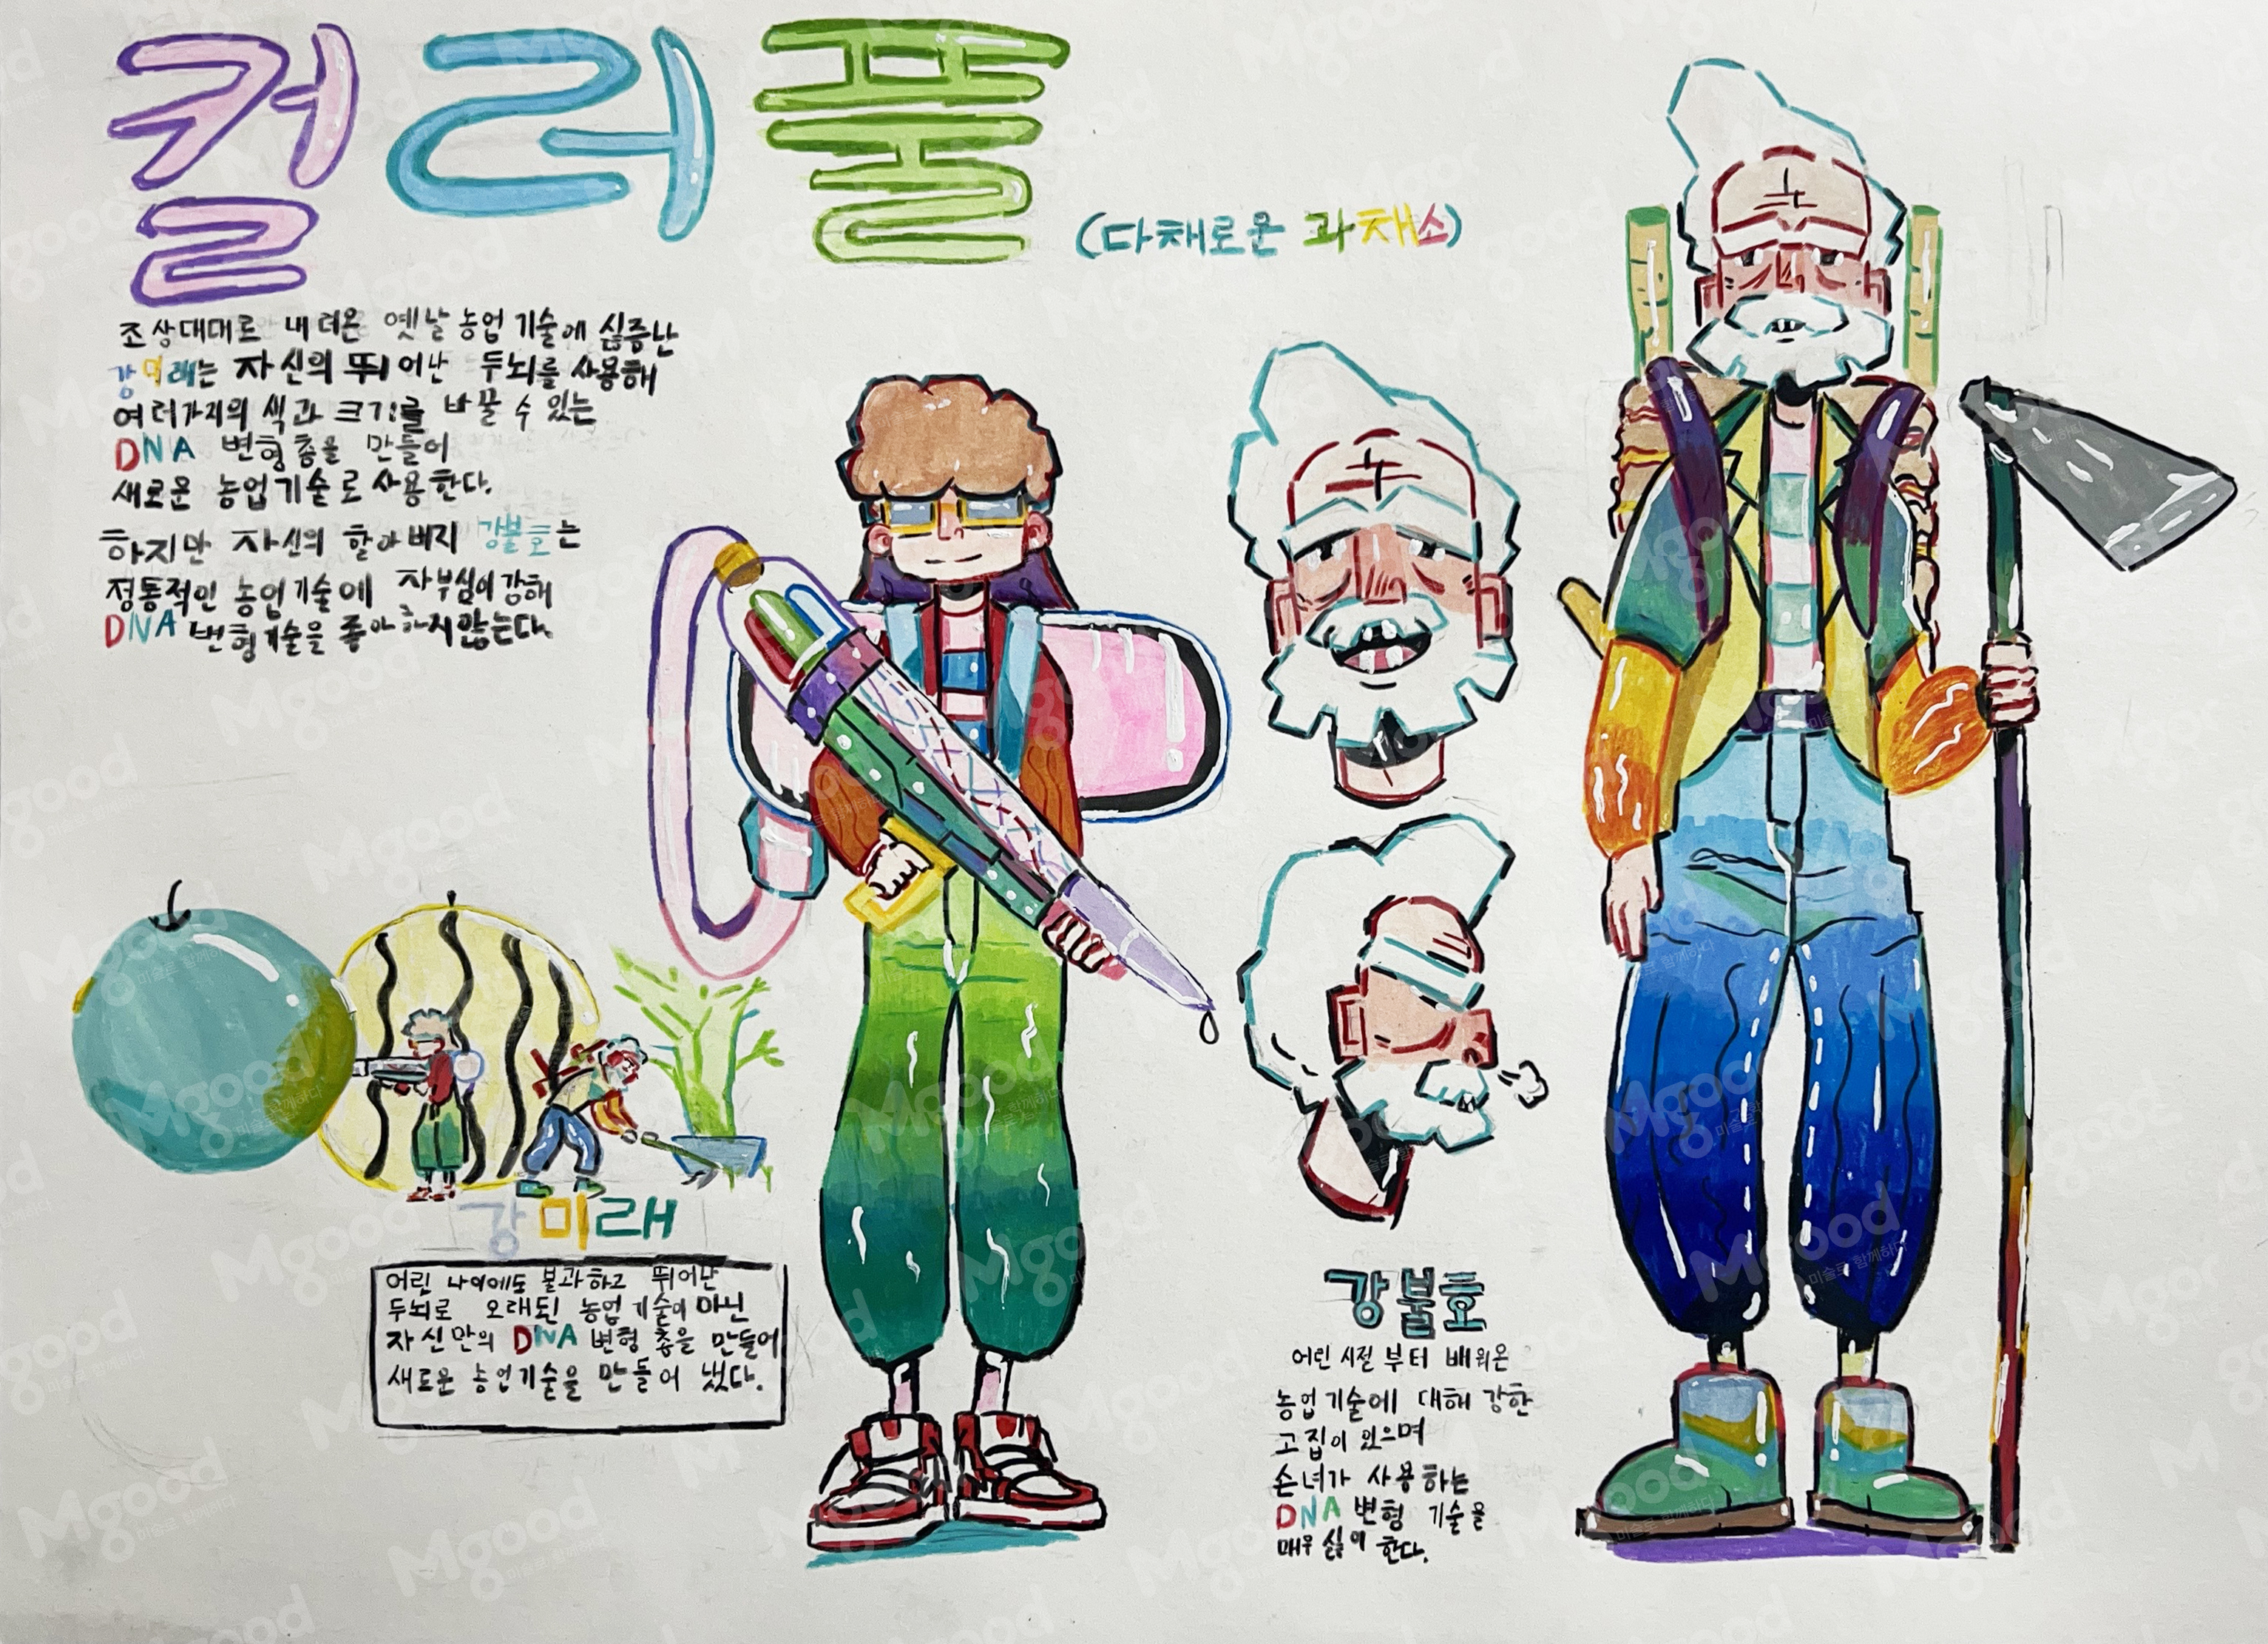 컬러풀
(다채로운 과채소)
조상대대로 내려온 옛날 농업기술에 싫증난
강미래는 자신의 뛰어난 두뇌를 사용해
여러가지의 색과 크기를 바꿀 수 있는
DNA 변형총을 만들어
새로운 농업기술로 사용한다.
하지만 자신의 할아버지 강불호는
정통적인 농업기술에 자부심이 강해
DNA 변형기술을 좋아하지 않는다.
강미래
어린 나이에도 불과하고 뛰어난
두뇌로 오래된 농업기술이 아닌
자신만의 DNA 변형 총을 만들어
새로운 농업기술을 만들어 냈다.
강불호
어린 시절부터 배워온
농업기술에 대해 강한
고집이 있으며
손녀가 사용하는
DNA 변형 기술을
매우 싫어 한다.
Mgood
미술로 함께하다